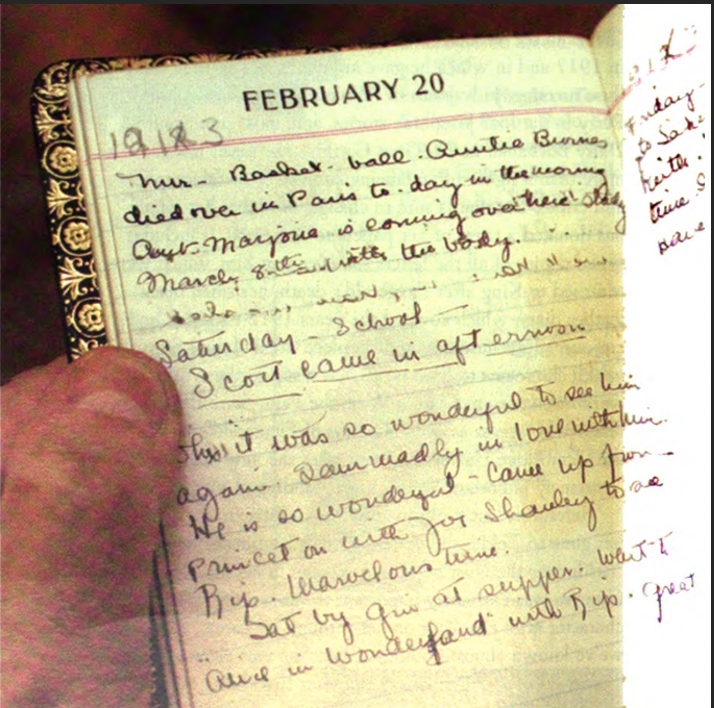 FEBRUARY 20
191
Thur - Basket-ball. Auntie
died over in Paris to-day in the morning
Aunt Marjorie is coming over here
March 8th with the body.
Saturday - School
Scott came in afternoon
it was so wonderful to see him
again. I am madly in love with him.
He is so wonderful - Came up from
Princeton with Joe Shanley to see
Rip. Marvelous time.
Sat by at supper. Went to
"Alice in Wonderland" with Rip. great
Friday -
to
time